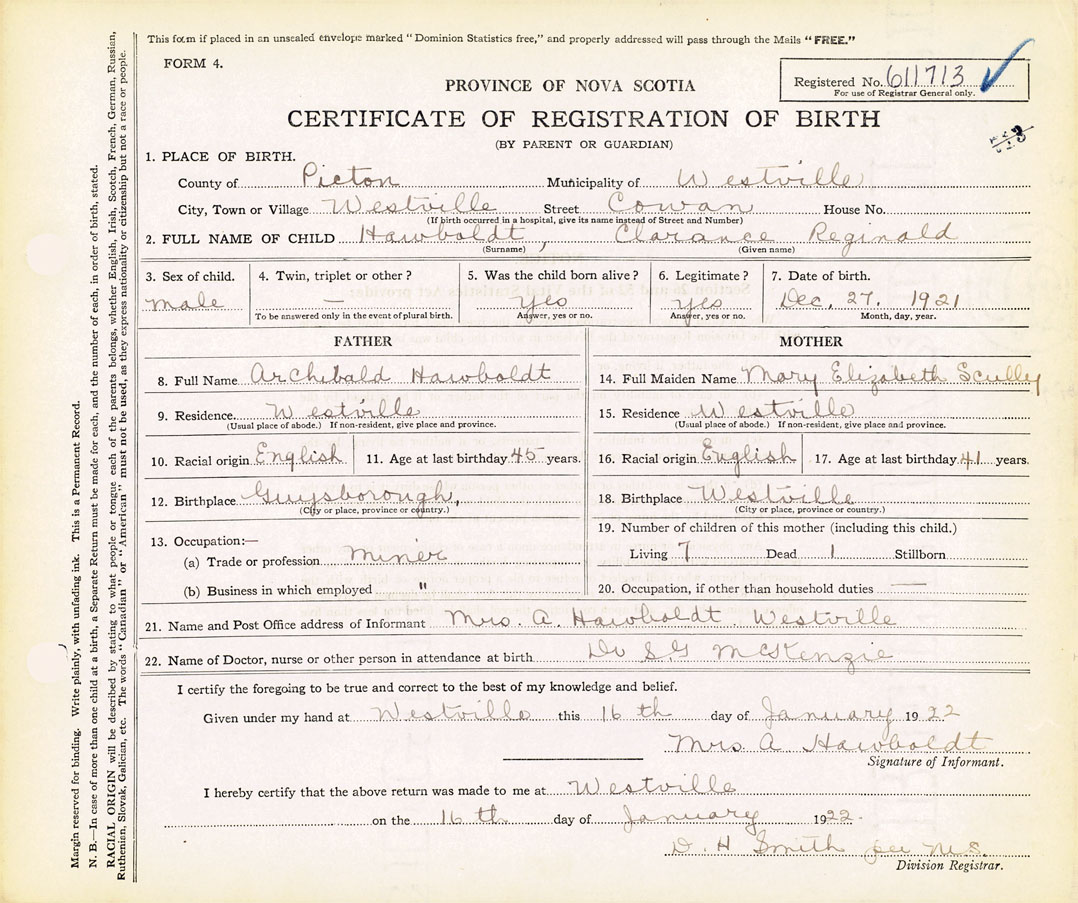 This form if placed in an unsealed envelope marked "Dominion Statistics free," and properly addressed will pass through the Mails "FREE."
FORM 4.
Registered No. 611713
For use of Registrar General only.
PROVINCE OF NOVA SCOTIA
CERTIFICATE OF REGISTRATION OF BIRTH
(BY PARENT OR GUARDIAN)
1. PLACE OF BIRTH.
County of Picton Municipality of Westville
City, Town or Village Westville Street Cowan House No.
(If birth occurred in a hospital, give its name instead of Street and Number)
2. FULL NAME OF CHILD Hawboldt, Clarance Reginald
(Surname) (Given name)
3. Sex of child. 4. Twin, triplet or other? 5. Was the child born alive? 6. Legitimate? 7. Date of birth.
male — Yes Yes Dec. 27. 1921
To be answered only in the event of plural birth. Answer, yes or no. Answer, yes or no. Month, day, year.
FATHER
8. Full Name Archibald Hawboldt
9. Residence. Westville
(Usual place of abode.) If non-resident, give place and province.
10. Racial origin English 11. Age at last birthday 45 years.
12. Birthplace Guysborough,
(City or place, province or country.)
13. Occupation:—
(a) Trade or profession miner
(b) Business in which employed "
MOTHER
14. Full Maiden Name Mary Elizabeth Sculley
15. Residence Westville
(Usual place of abode.) If non-resident, give place and province.
16. Racial origin English 17. Age at last birthday 41 years.
18. Birthplace Westville
(City or place, province or country.)
19. Number of children of this mother (including this child.)
Living 7 Dead 1 Stillborn
20. Occupation, if other than household duties —
21. Name and Post Office address of Informant Mrs. A. Hawboldt. Westville
22. Name of Doctor, nurse or other person in attendance at birth Dr S.G McKenzie
I certify the foregoing to be true and correct to the best of my knowledge and belief.
Given under my hand at Westville this 16 th day of January 1922
Mrs. A Hawboldt
Signature of Informant.
I hereby certify that the above return was made to me at Westville
on the 16 th day of January 1922.
D. H Smith per M.S.
Division Registrar.
Margin reserved for binding. Write plainly, with unfading ink. This is a Permanent Record.
N. B.—In case of more than one child at a birth, a Separate Return must be made for each, and the number of each, in order of birth, stated.
RACIAL ORIGIN will be described by stating to what people or tongue each of the parents belongs, whether English, Irish, Scotch, French, German, Russian,
Ruthenian, Slovak, Galician, etc. The words "Canadian" or "American" must not be used, as they express nationality or citizenship but not a race or people.